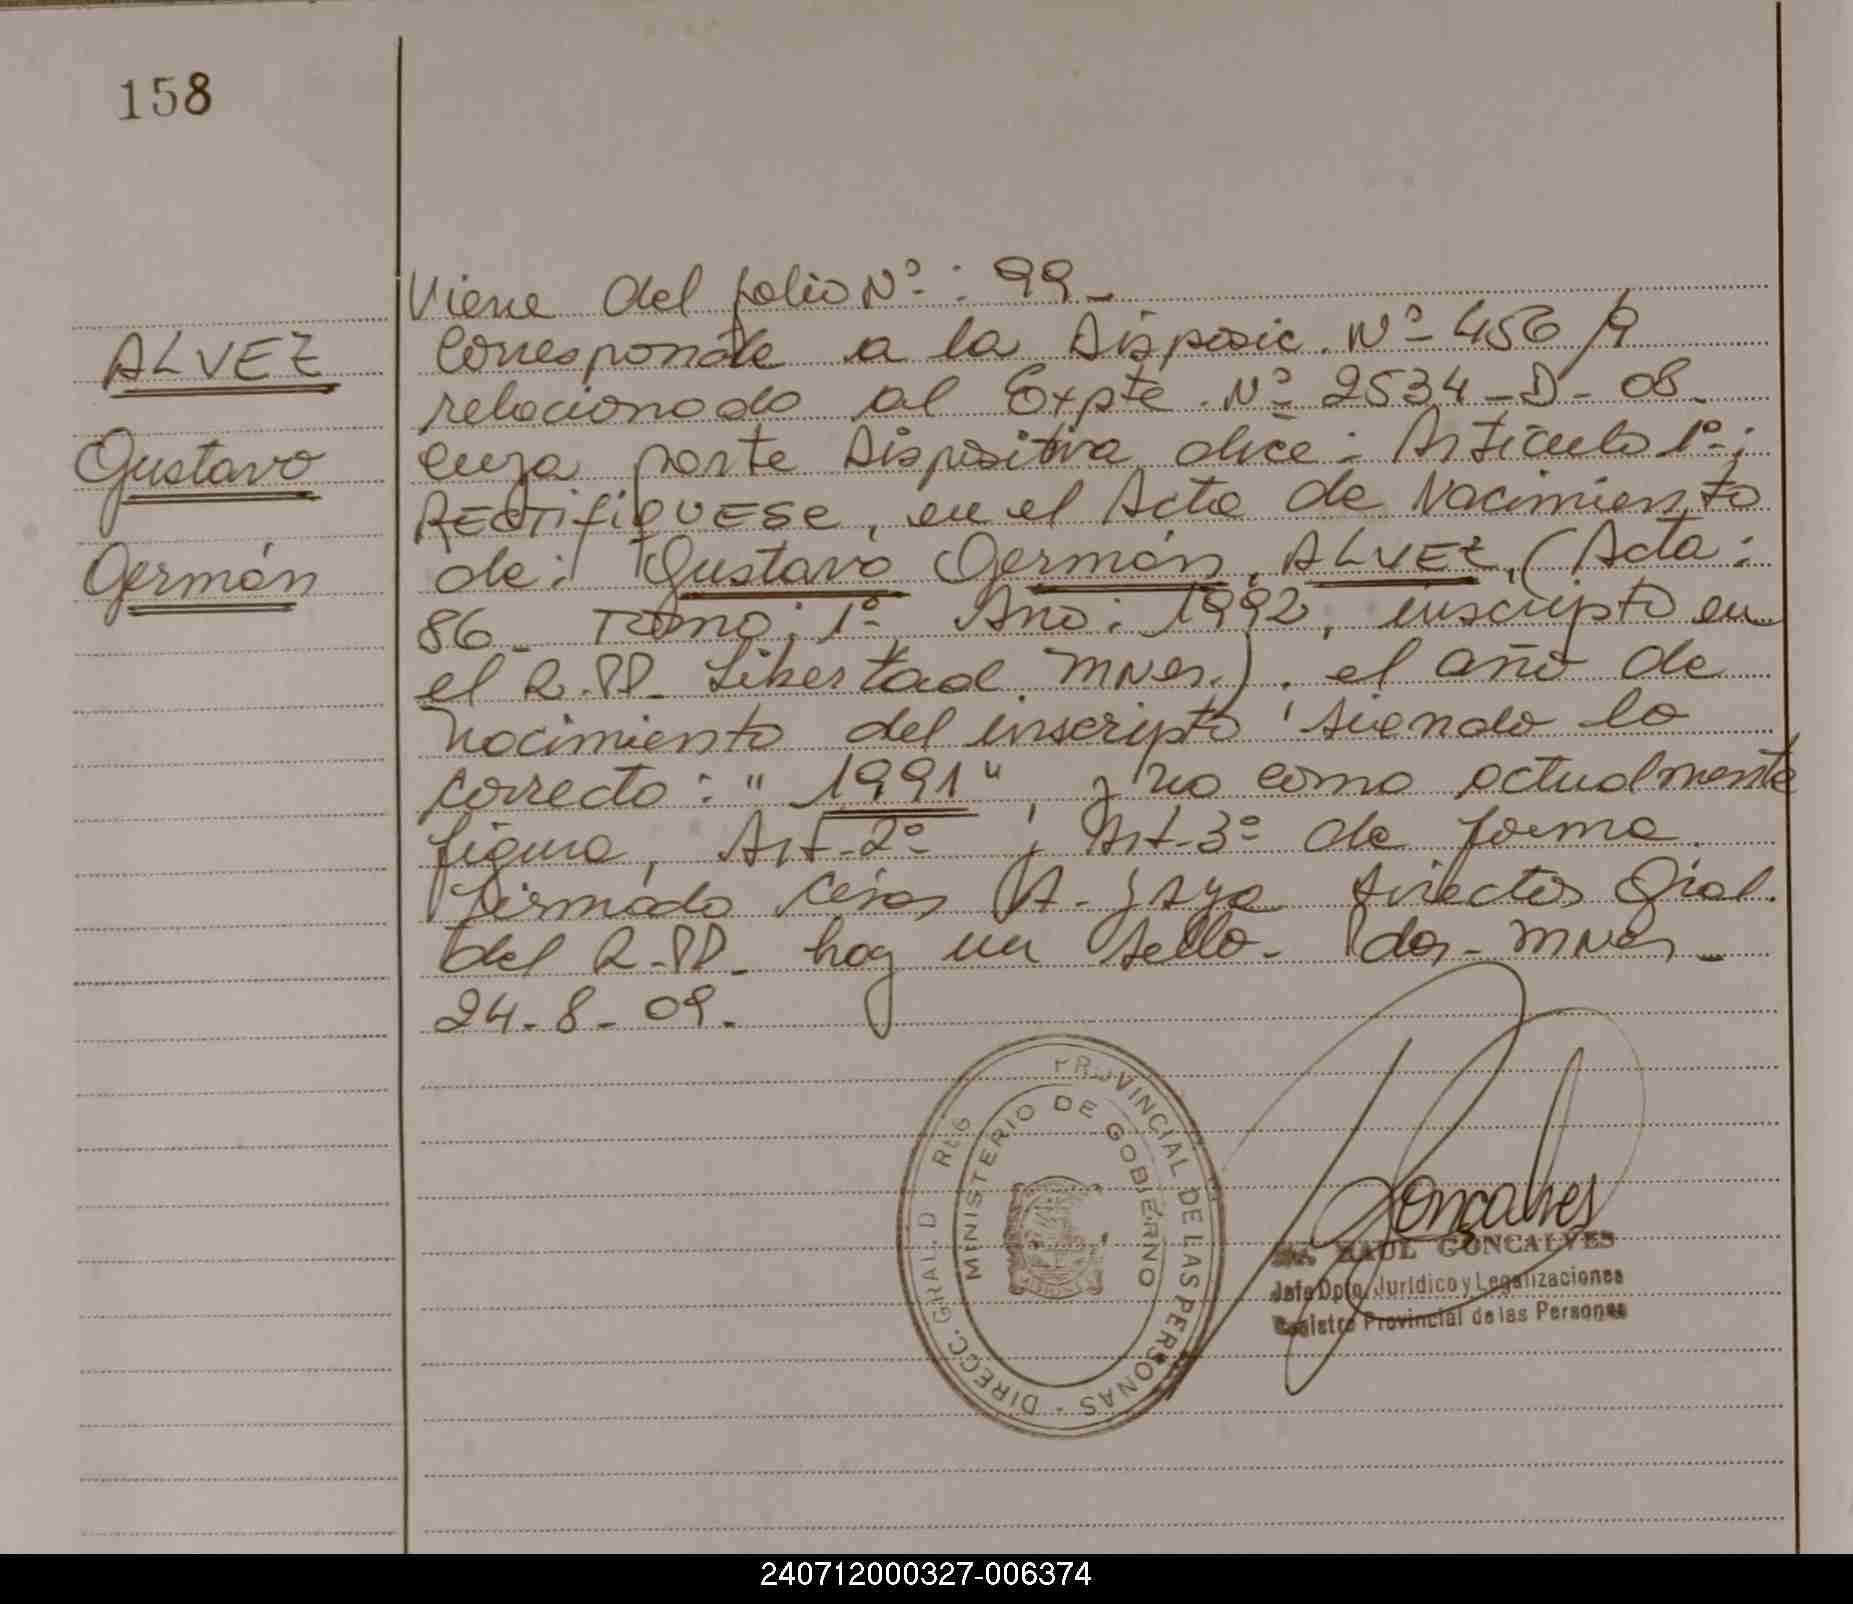 158
ALVEZ
Gustavo
Germán
Viene del folio Nº: 99-
Corresponde a la Disposic. Nº 456/9
relacionado al Expte. Nº 2534-D-08-
cuya parte Dispositiva dice: Artículo 1º:
RECTIFIQUESE, en el Acta de Nacimiento
de: Gustavo Germán, ALVEZ, (Acta:
86- Tomo: 1º Ano: 1992, inscripto en
el R.PP. Libertad Mnes.). el año de
nacimiento del inscripto, siendo lo
correcto: "1991", y no como actualmente
figura, Art-2º y Art-3º de forma.
Firmado César A. Director Gral.
del R.PP. hay un sello- Pdas- Mnes-
24-8-09.
DIRECC. GRAL. D REG PROVINCIAL DE LAS PERSONAS -
MINISTERIO DE GOBIERNO
Goncalves
RAUL GONCALVES
Jefe Dpto. Jurídico y Legalizaciones
Registro Provincial de las Personas
240712000327-006374